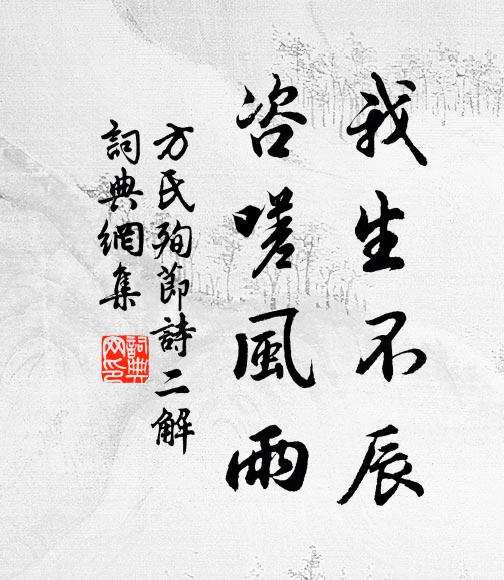 我生不辰
咨嗟風雨
方氏殉節詩二解
詞典網集
詞典网印